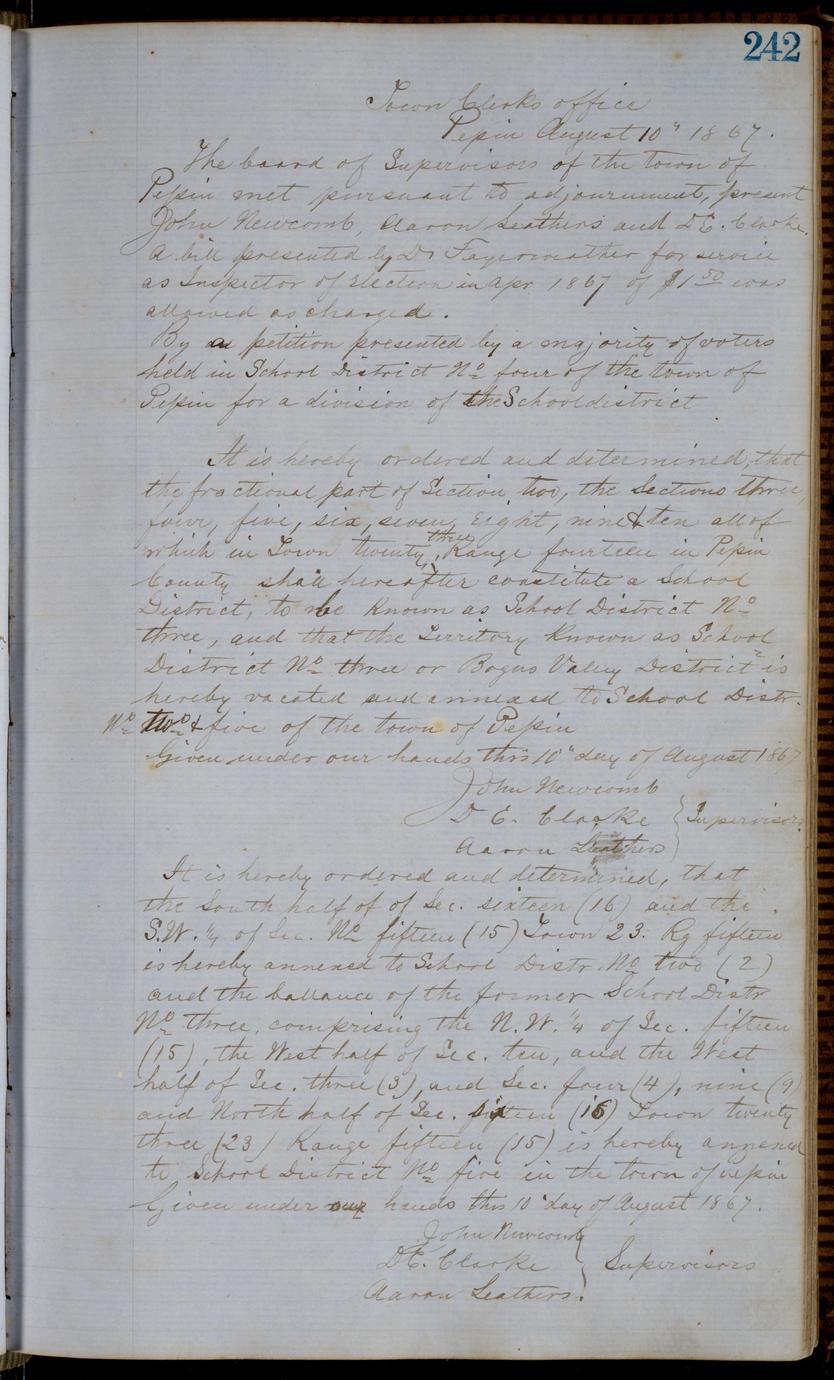 242
Town Clerks office
Pepin August 10" 1867.
The board of Supervisors of the town of
Pepin met pursuant to adjournment, present
John Newcomb, Aaron Leathers and D.E. Clarke.
A bill presented by Dr Fayerweather for service
as Inspector of Election in Apr 1867 of $1 50 was
allowed as charged.
By a petition presented by a majority of voters
held in School District No four of the town of
Pepin for a division of the School district
It is hereby ordered and determined, that
the fractional part of Section two, the Sections three,
four, five, six, seven, Eight, nine & ten all of
which in Town twenty three, Range fourteen in Pepin
County shall hereafter constitute a School
District, to be Known as School District No
three, and that the Territory Known as School
District No three or Bogus Valley District is
hereby vacated and annexed to School Distr.
No two & five of the town of Pepin
Given under our hands this 10" day of August 1867
John Newcomb
D E. Clarke } Supervisors
Aaron Leathers
It is hereby ordered and determined, that
the South half of of Sec. sixteen (16) and the
S.W. 1/4 of Sec. No fifteen (15) Town 23. Rg fifteen
is hereby annexed to School Distr. No two (2)
and the ballance of the former School Distr
No three, comprising the N.W. 1/4 of Sec. fifteen
(15), the West half of Sec. ten, and the West
half of Sec. three (3), and Sec. four (4), nine (9)
and North half of Sec. sixteen (16) Town twenty
three (23) Range fifteen (15) is hereby annexed
to School District No five in the town of Pepin
Given under our hands this 10" day of August 1867.
John Newcomb
D.E. Clarke } Supervisors
Aaron Leathers.